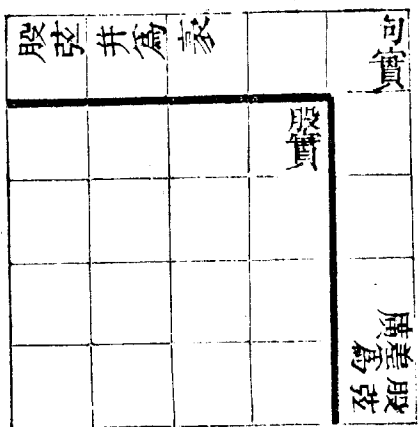 股弦并為袤
句實
股實
股弦差為廣